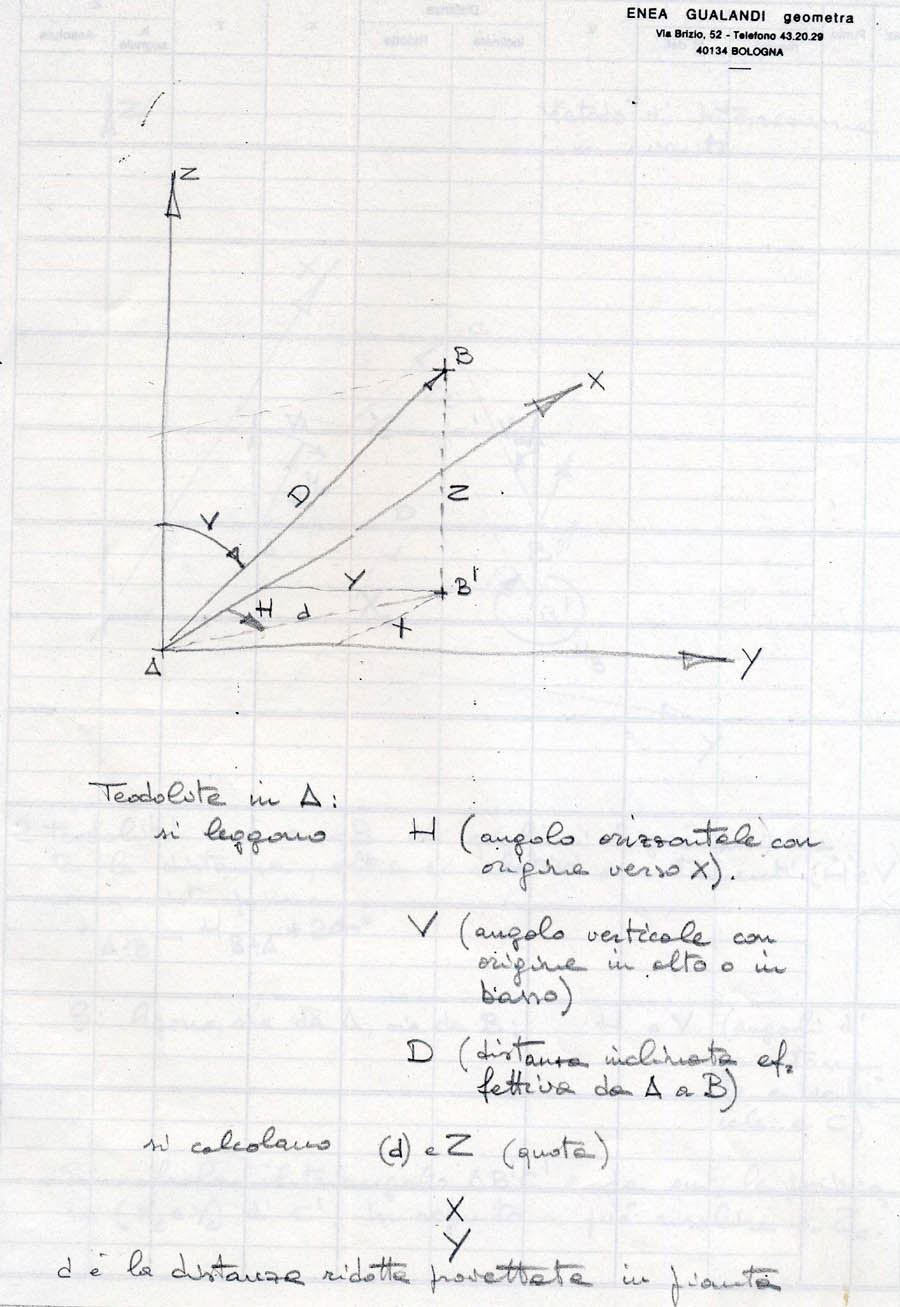 ENEA GUALANDI geometra
Via Brizio, 52 - Telefono 43.20.29
40134 BOLOGNA
Z
B
X
D
Z
V
Y
B'
H d
X
A
Y
Teodolite in A:
si leggono H (angolo orizzontale con
origine verso X).
V (angolo verticale con
origine in alto o in
basso)
D (distanza inclinata ef=
fettiva da A a B)
si calcolano (d) e Z (quota)
X
Y
d è la distanza ridotta proiettata in pianta